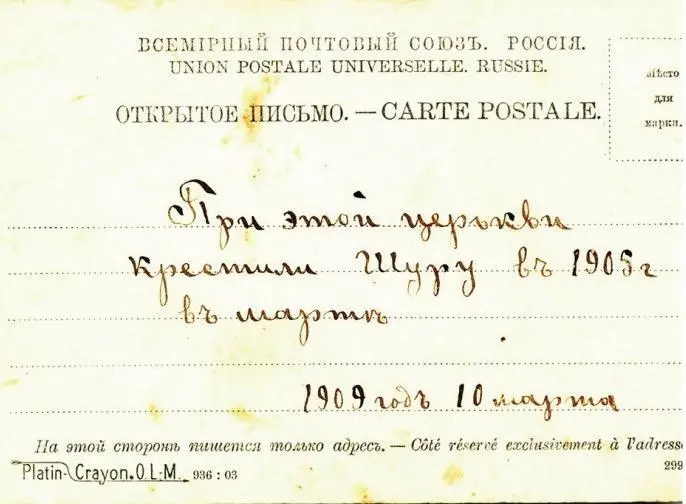 ВСЕМІРНЫЙ ПОЧТОВЫЙ СОЮЗЪ. РОССІЯ.
UNION POSTALE UNIVERSELLE. RUSSIE.
ОТКРЫТОЕ ПИСЬМО. — CARTE POSTALE.
Мѣсто
для
марки.
При этой церькви
крестили Шуру въ 1905 г
въ мартѣ
1909 годъ 10 марта
На этой сторонѣ пишется только адресъ. — Côté réservé exclusivement à l'adresse
Platin-Crayon. O.L.M. 936 : 03
299